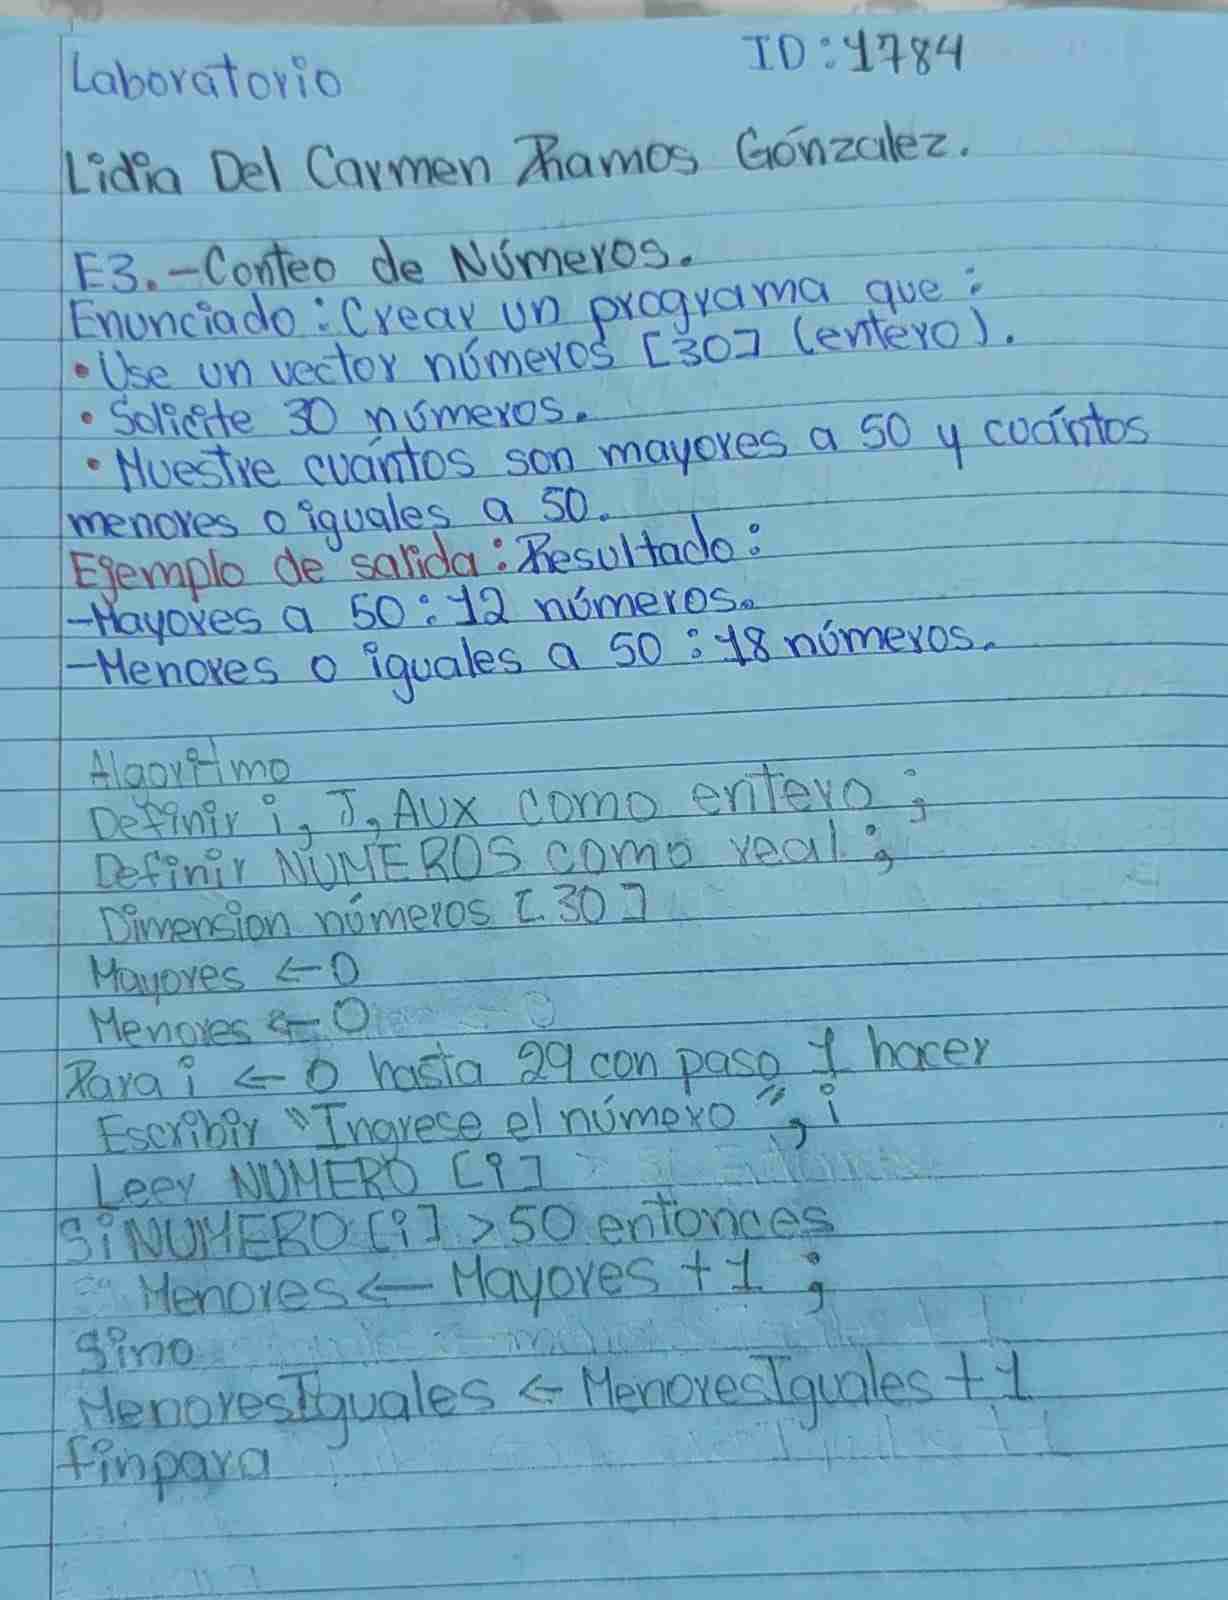 Laboratorio
ID:1784
Lidia Del Carmen Rhamos Gónzalez.
E3.-Conteo de Números.
Enunciado: Crear un programa que:
• Use un vector números [30] (entero).
• Solicite 30 números.
• Muestre cuántos son mayores a 50 y cuántos
menores o iguales a 50.
Ejemplo de salida: Resultado:
-Mayores a 50: 12 números.
-Menores o iguales a 50: 18 números.
Algoritmo
Definir i, J, AUX como entero;
Definir NUMEROS como real;
Dimension números [30]
Mayores ← 0
Menores ← 0
Para i ← 0 hasta 29 con paso 1 hacer
Escribir "Ingrese el número", i
Leer NUMERO [i]
Si NUMERO [i] > 50 entonces
Menores ← Mayores + 1;
Sino
MenoresIguales ← MenoresIguales + 1
finpara